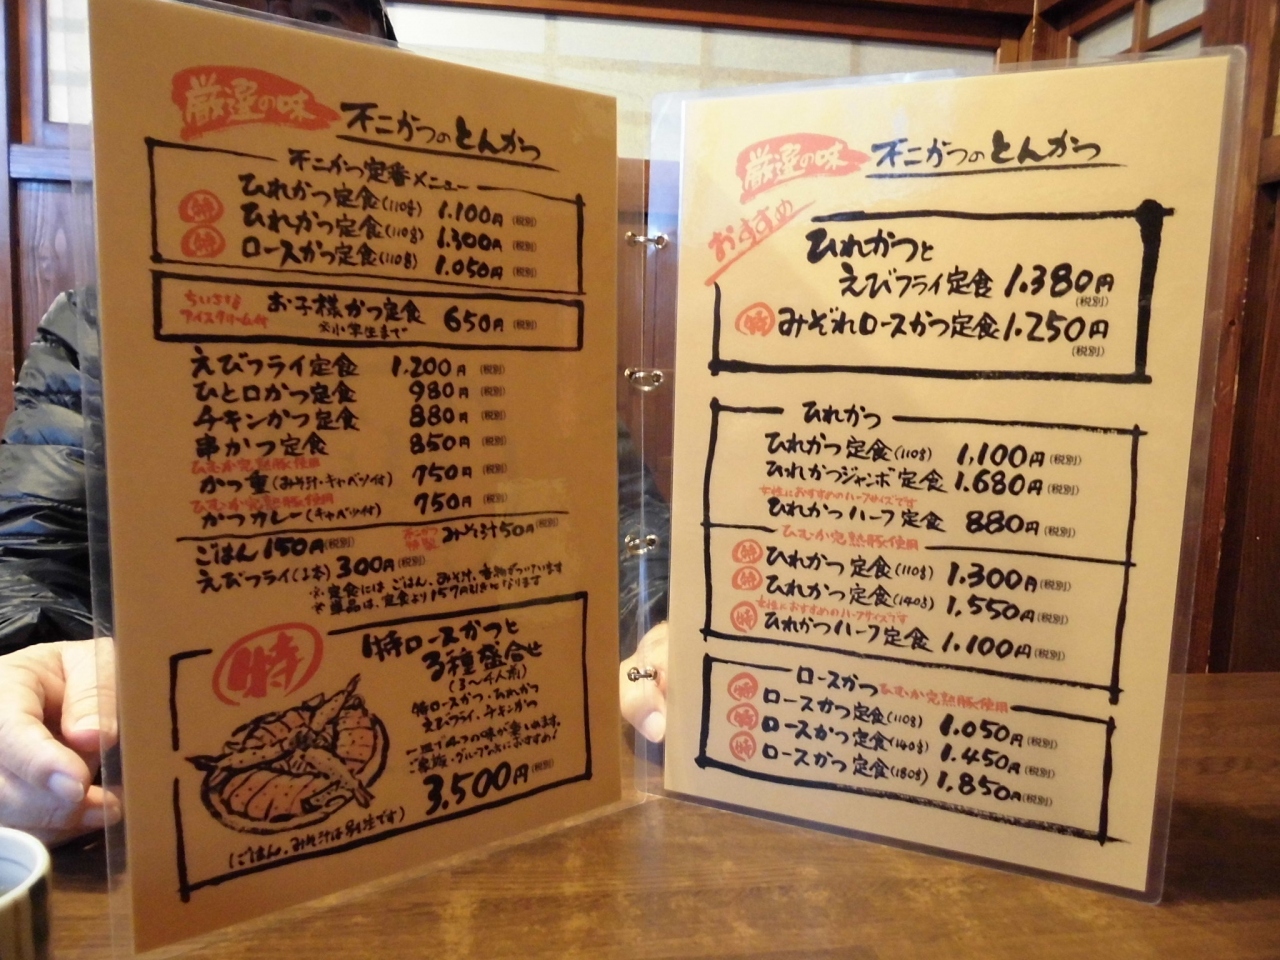 厳選の味 不二かつのとんかつ
不二かつ定番メニュー
ひれかつ定食(110g) 1.100円(税別)
特 ひれかつ定食(110g) 1.300円(税別)
特 ロースかつ定食(110g) 1.050円(税別)
ちいさな
アイスクリーム付
お子様かつ定食 650円(税別)
※小学生まで
えびフライ定食 1.200円(税別)
ひと口かつ定食 980円(税別)
チキンかつ定食 880円(税別)
串かつ定食 850円(税別)
ひむか完熟豚使用
かつ重(みそ汁・キャベツ付) 750円(税別)
ひむか完熟豚使用
かつカレー(キャベツ付) 750円(税別)
ごはん 150円(税別) 不二かつ特製 みそ汁50円(税別)
えびフライ(1本) 300円(税別)
※定食には、ごはん、みそ汁、香物がついています
※単品は、定食より157円引きとなります
特
特ロースかつと
3種盛合せ
(3〜4人前)
特ロースかつ・ひれかつ
えびフライ・チキンかつ
一皿で4つの味が楽しめます。
ご家族・グループの方におすすめ!
3.500円(税別)
(ごはん、みそ汁は別注です)
厳選の味 不二かつのとんかつ
おすすめ
ひれかつと
えびフライ定食 1.380円(税別)
特 みぞれロースかつ定食 1.250円(税別)
ひれかつ
ひれかつ定食(110g) 1,100円(税別)
ひれかつジャンボ定食 1.680円(税別)
女性におすすめのハーフサイズです
ひれかつハーフ定食 880円(税別)
ひむか完熟豚使用
特 ひれかつ定食(110g) 1.300円(税別)
特 ひれかつ定食(140g) 1,550円(税別)
女性におすすめのハーフサイズです
特 ひれかつハーフ定食 1.100円(税別)
ロースかつ ひむか完熟豚使用
特 ロースかつ定食(110g) 1.050円(税別)
特 ロースかつ定食(140g) 1.450円(税別)
特 ロースかつ定食(180g) 1,850円(税別)